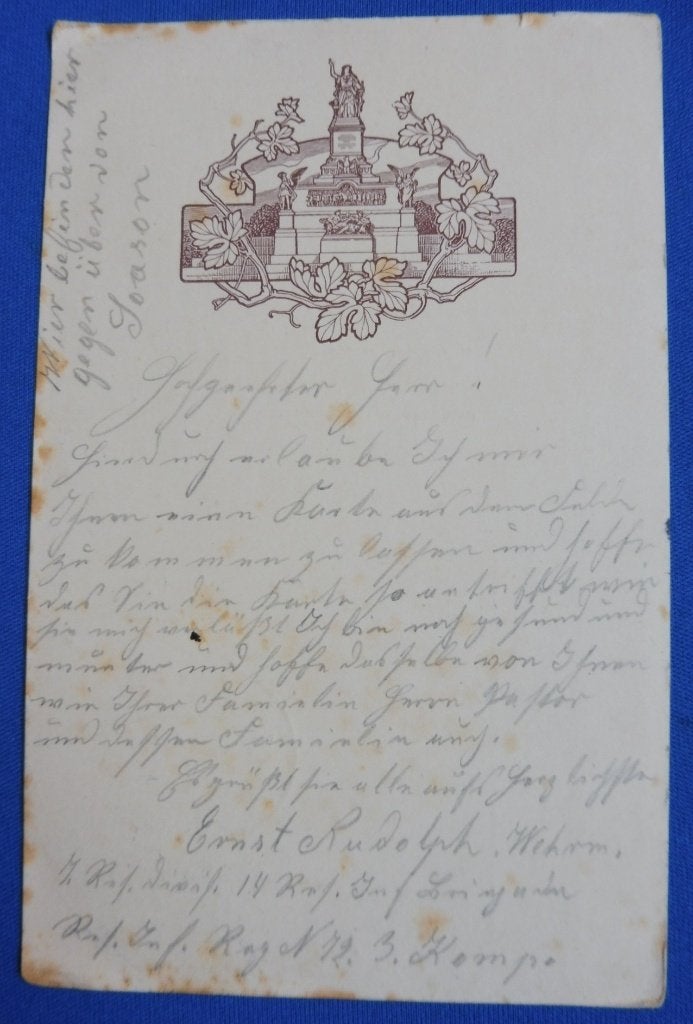 Wier befinden hier
gegen über von
Soason
Hochgeehrter Herr!
Hierdurch erlaube Ich mir
Ihnen eine Karte aus dem Felde
zu kommen zu lassen und hoffe
das Sie die Karte so antrifft wie
sie mich verläßt Ich bin noch gesund und
munter und hoffe dasselbe von Ihnen
wie Ihrer Familie Herrn Pastor
und dessen Familie auch.
Es grüßt sie alle aufs Herzlichste
Ernst Rudolph, Wehrm.
7. Res. divis. 14 Res. Inf Brigade
Res. Inf. Reg N 72. 3. Komp.